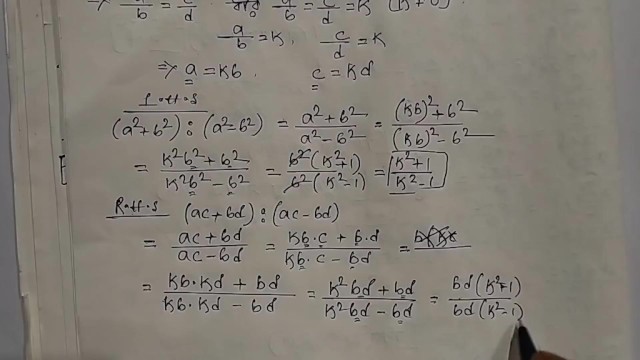 ⇒ a/b = c/d a/b = c/d = K (K≠0).
a/b = K. c/d = K
⇒ a = Kb. c = Kd
(a²+b²) : (a²-b²) = (a²+b²)/(a²-b²) = ((Kb)²+b²)/((Kb)²-b²)
= (K²b²+b²)/(K²b²-b²) = (b²(K²+1))/(b²(K²-1)) = (K²+1)/(K²-1)
(ac+bd) : (ac-bd)
= (ac+bd)/(ac-bd) = (Kb·c + b·d)/(Kb·c - bd) =
= (Kb·Kd + bd)/(Kb·Kd - bd) = (K²bd+bd)/(K²bd-bd) = (bd(K²+1))/(bd(K²-1))